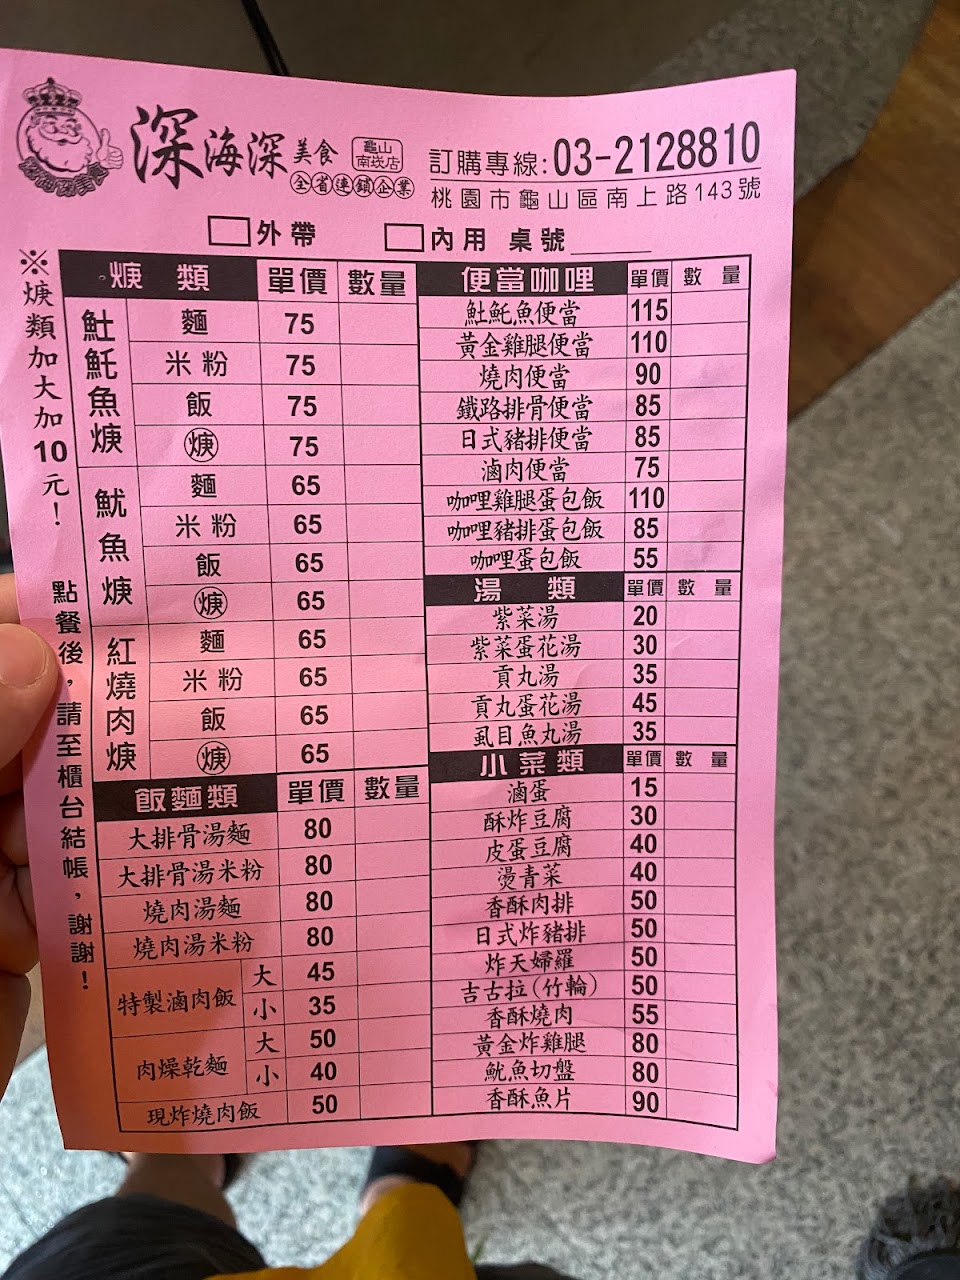 深海深美食 龜山南崁店
全省連鎖企業
訂購專線:03-2128810
桃園市龜山區南上路143號
外帶 內用 桌號
※焿類加大加10元!
點餐後,請至櫃台結帳,謝謝!
焿類 單價 數量
𩵚魠魚焿
麵 75
米粉 75
飯 75
焿 75
魷魚焿
麵 65
米粉 65
飯 65
焿 65
紅燒肉焿
麵 65
米粉 65
飯 65
焿 65
飯麵類 單價 數量
大排骨湯麵 80
大排骨湯米粉 80
燒肉湯麵 80
燒肉湯米粉 80
特製滷肉飯 大 45
小 35
肉燥乾麵 大 50
小 40
現炸燒肉飯 50
便當咖哩 單價 數量
𩵚魠魚便當 115
黃金雞腿便當 110
燒肉便當 90
鐵路排骨便當 85
日式豬排便當 85
滷肉便當 75
咖哩雞腿蛋包飯 110
咖哩豬排蛋包飯 85
咖哩蛋包飯 55
湯類 單價 數量
紫菜湯 20
紫菜蛋花湯 30
貢丸湯 35
貢丸蛋花湯 45
虱目魚丸湯 35
小菜類 單價 數量
滷蛋 15
酥炸豆腐 30
皮蛋豆腐 40
燙青菜 40
香酥肉排 50
日式炸豬排 50
炸天婦羅 50
吉古拉(竹輪) 50
香酥燒肉 55
黃金炸雞腿 80
魷魚切盤 80
香酥魚片 90